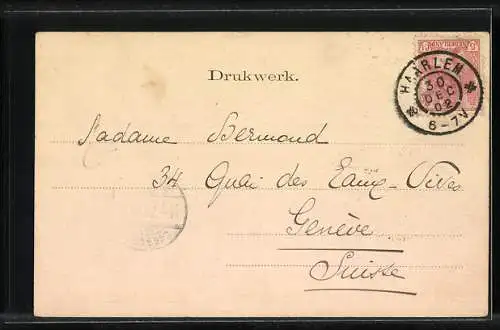 Drukwerk.
HAARLEM
30
DEC
02
6-7V
Madame Bermond
34 Quai des Eaux-Vives
Genève
Suisse